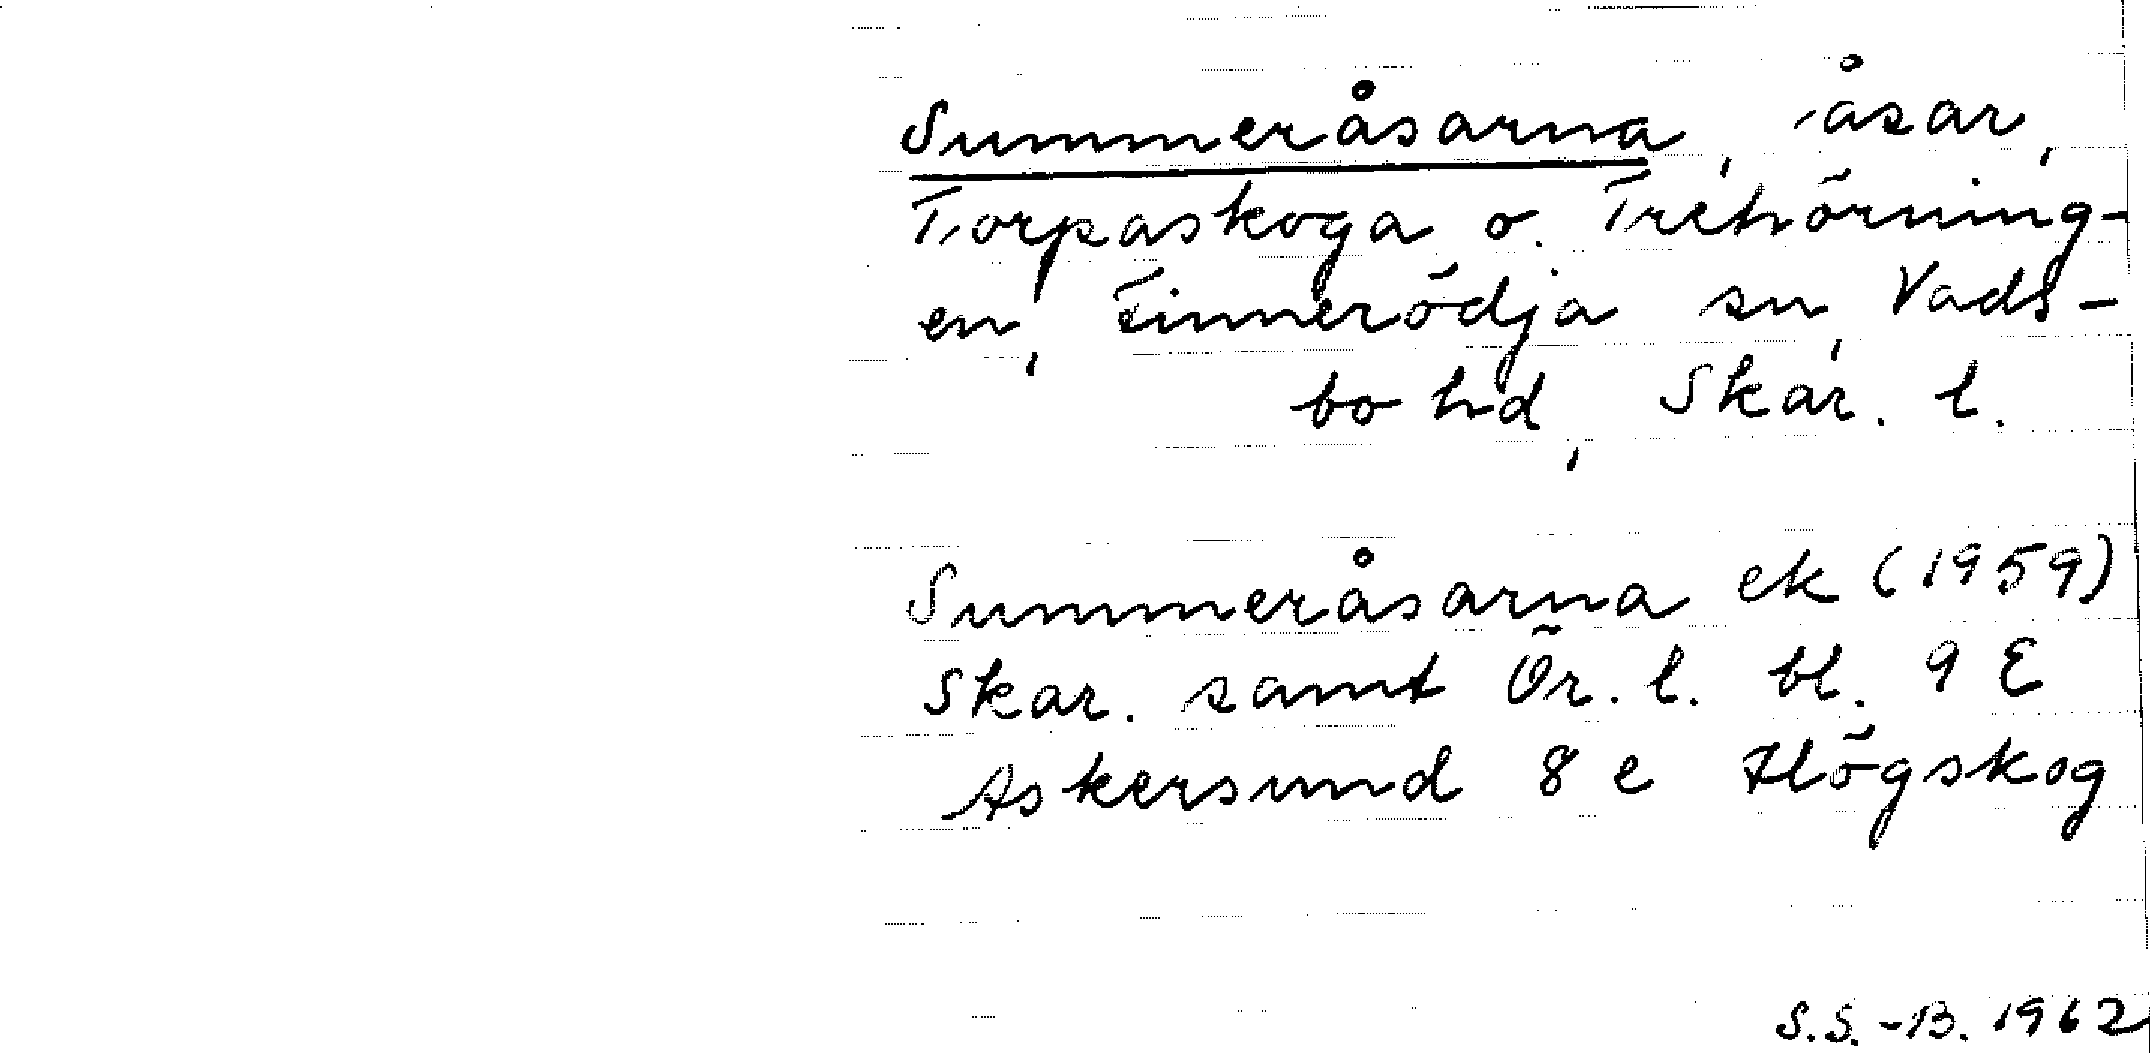 Summeråsarna, åsar,
Torpaskoga o. Trehörning-
en, Finnerödja sn, Vads-
bo hd, Skar. l.
Summeråsarna ek (1959)
Skar. samt Ör. l. bl. 9 E
Askersund 8 e Högskog
S.S.-B. 1962